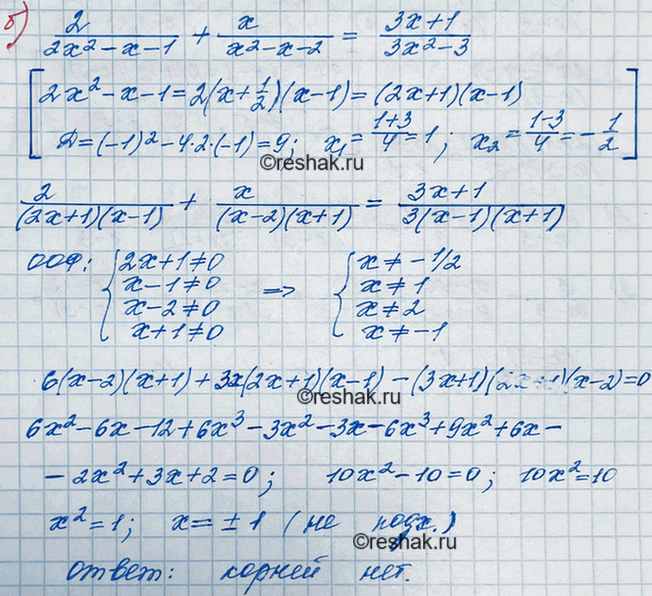 б) 2/(2x²-x-1) + x/(x²-x-2) = (3x+1)/(3x²-3)
[2x²-x-1=2(x+1/2)(x-1)=(2x+1)(x-1)
Д=(-1)²-4·2·(-1)=9; x₁=(1+3)/4=1; x₂=(1-3)/4=-1/2]
©reshak.ru
2/((2x+1)(x-1)) + x/((x-2)(x+1)) = (3x+1)/(3(x-1)(x+1))
ООФ: {2x+1≠0 => {x≠-1/2
x-1≠0 x≠1
x-2≠0 x≠2
x+1≠0 x≠-1
6(x-2)(x+1)+3x(2x+1)(x-1)-(3x+1)(2x+1)(x-2)=0
©reshak.ru
6x²-6x-12+6x³-3x²-3x-6x³+9x²+6x-
-2x²+3x+2=0; 10x²-10=0; 10x²=10
x²=1; x=±1 (не подх.)
©reshak.ru
ответ: корней нет.